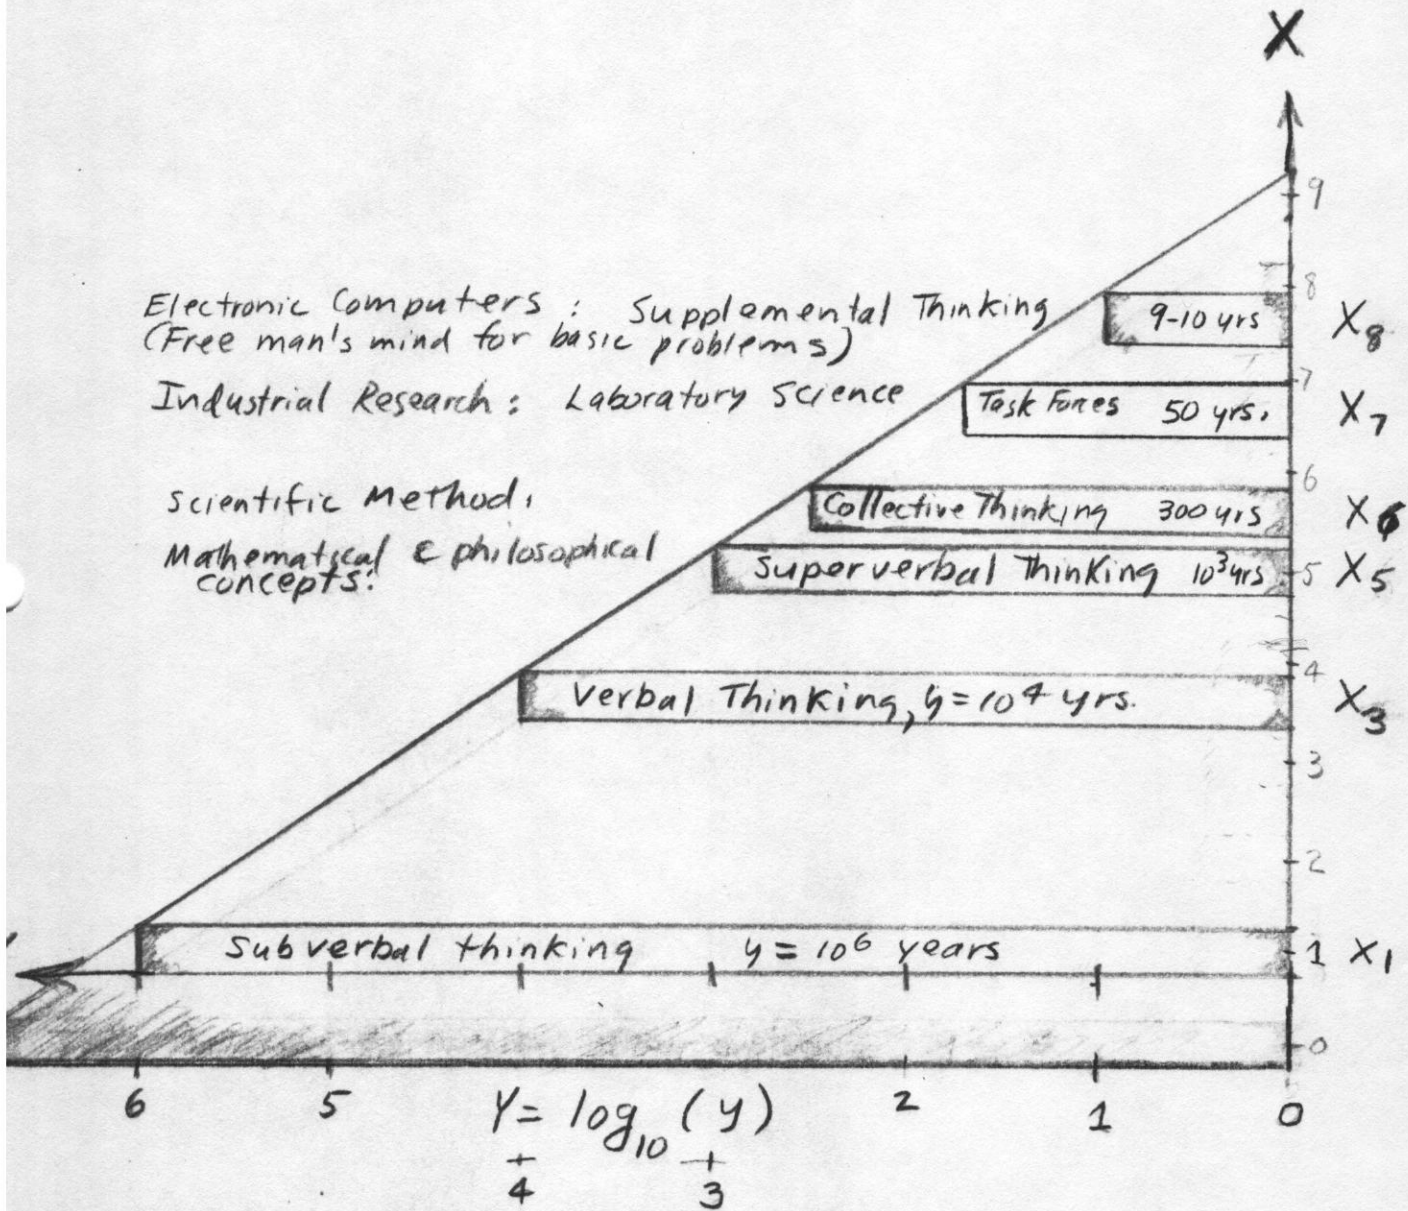 X
9
Electronic Computers : Supplemental Thinking
8
9-10 yrs
X8
(Free man's mind for basic problems)
Industrial Research : Laboratory Science
7
Task Forces 50 yrs.
X7
Scientific Method.
6
Collective Thinking 300 yrs
X6
Mathematical & philosophical
concepts:
Superverbal Thinking 10³ yrs
5
X5
4
Verbal Thinking, y = 10⁴ yrs.
X3
3
2
Subverbal thinking y = 10⁶ years
1
X1
0
6 5 Y = log10 (y) 2 1 0
4 3